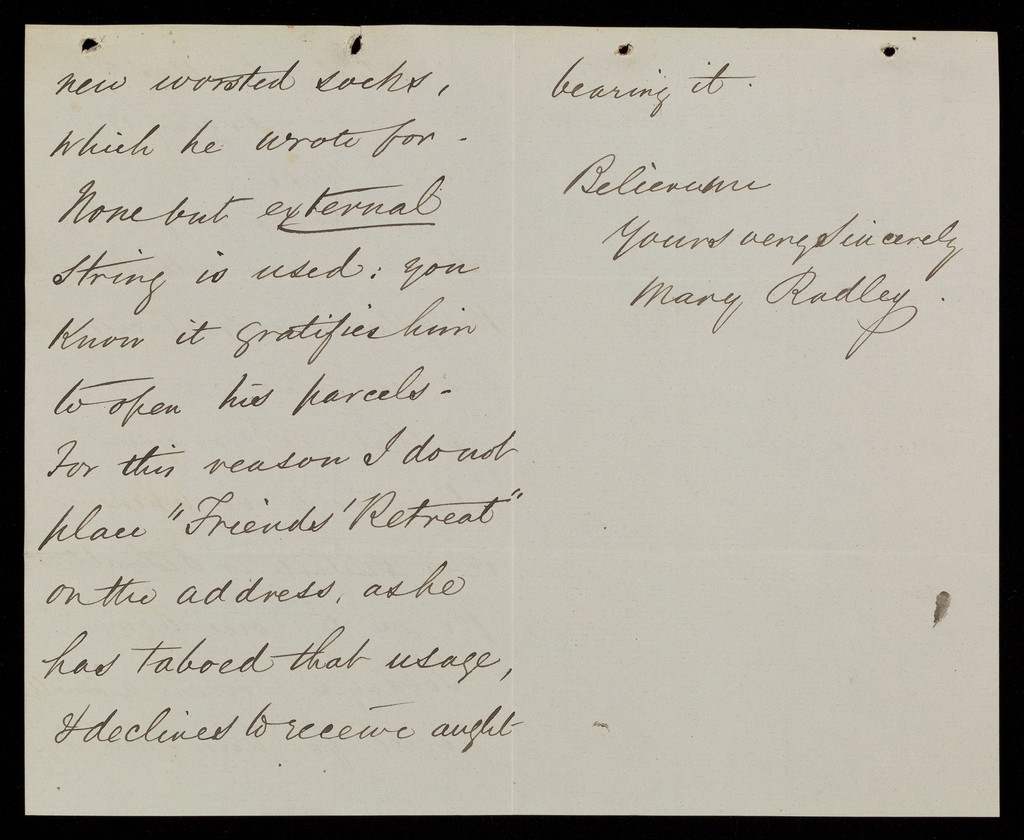 new worsted socks,
which he wrote for -
None but external
string is used: you
know it gratifies him
to open his parcels -
For this reason I do not
place "Friends' Retreat"
on the address, as he
has taboed that usage,
& declines to receive aught
bearing it.
Believe me
Yours very sincerely
Mary Radley.